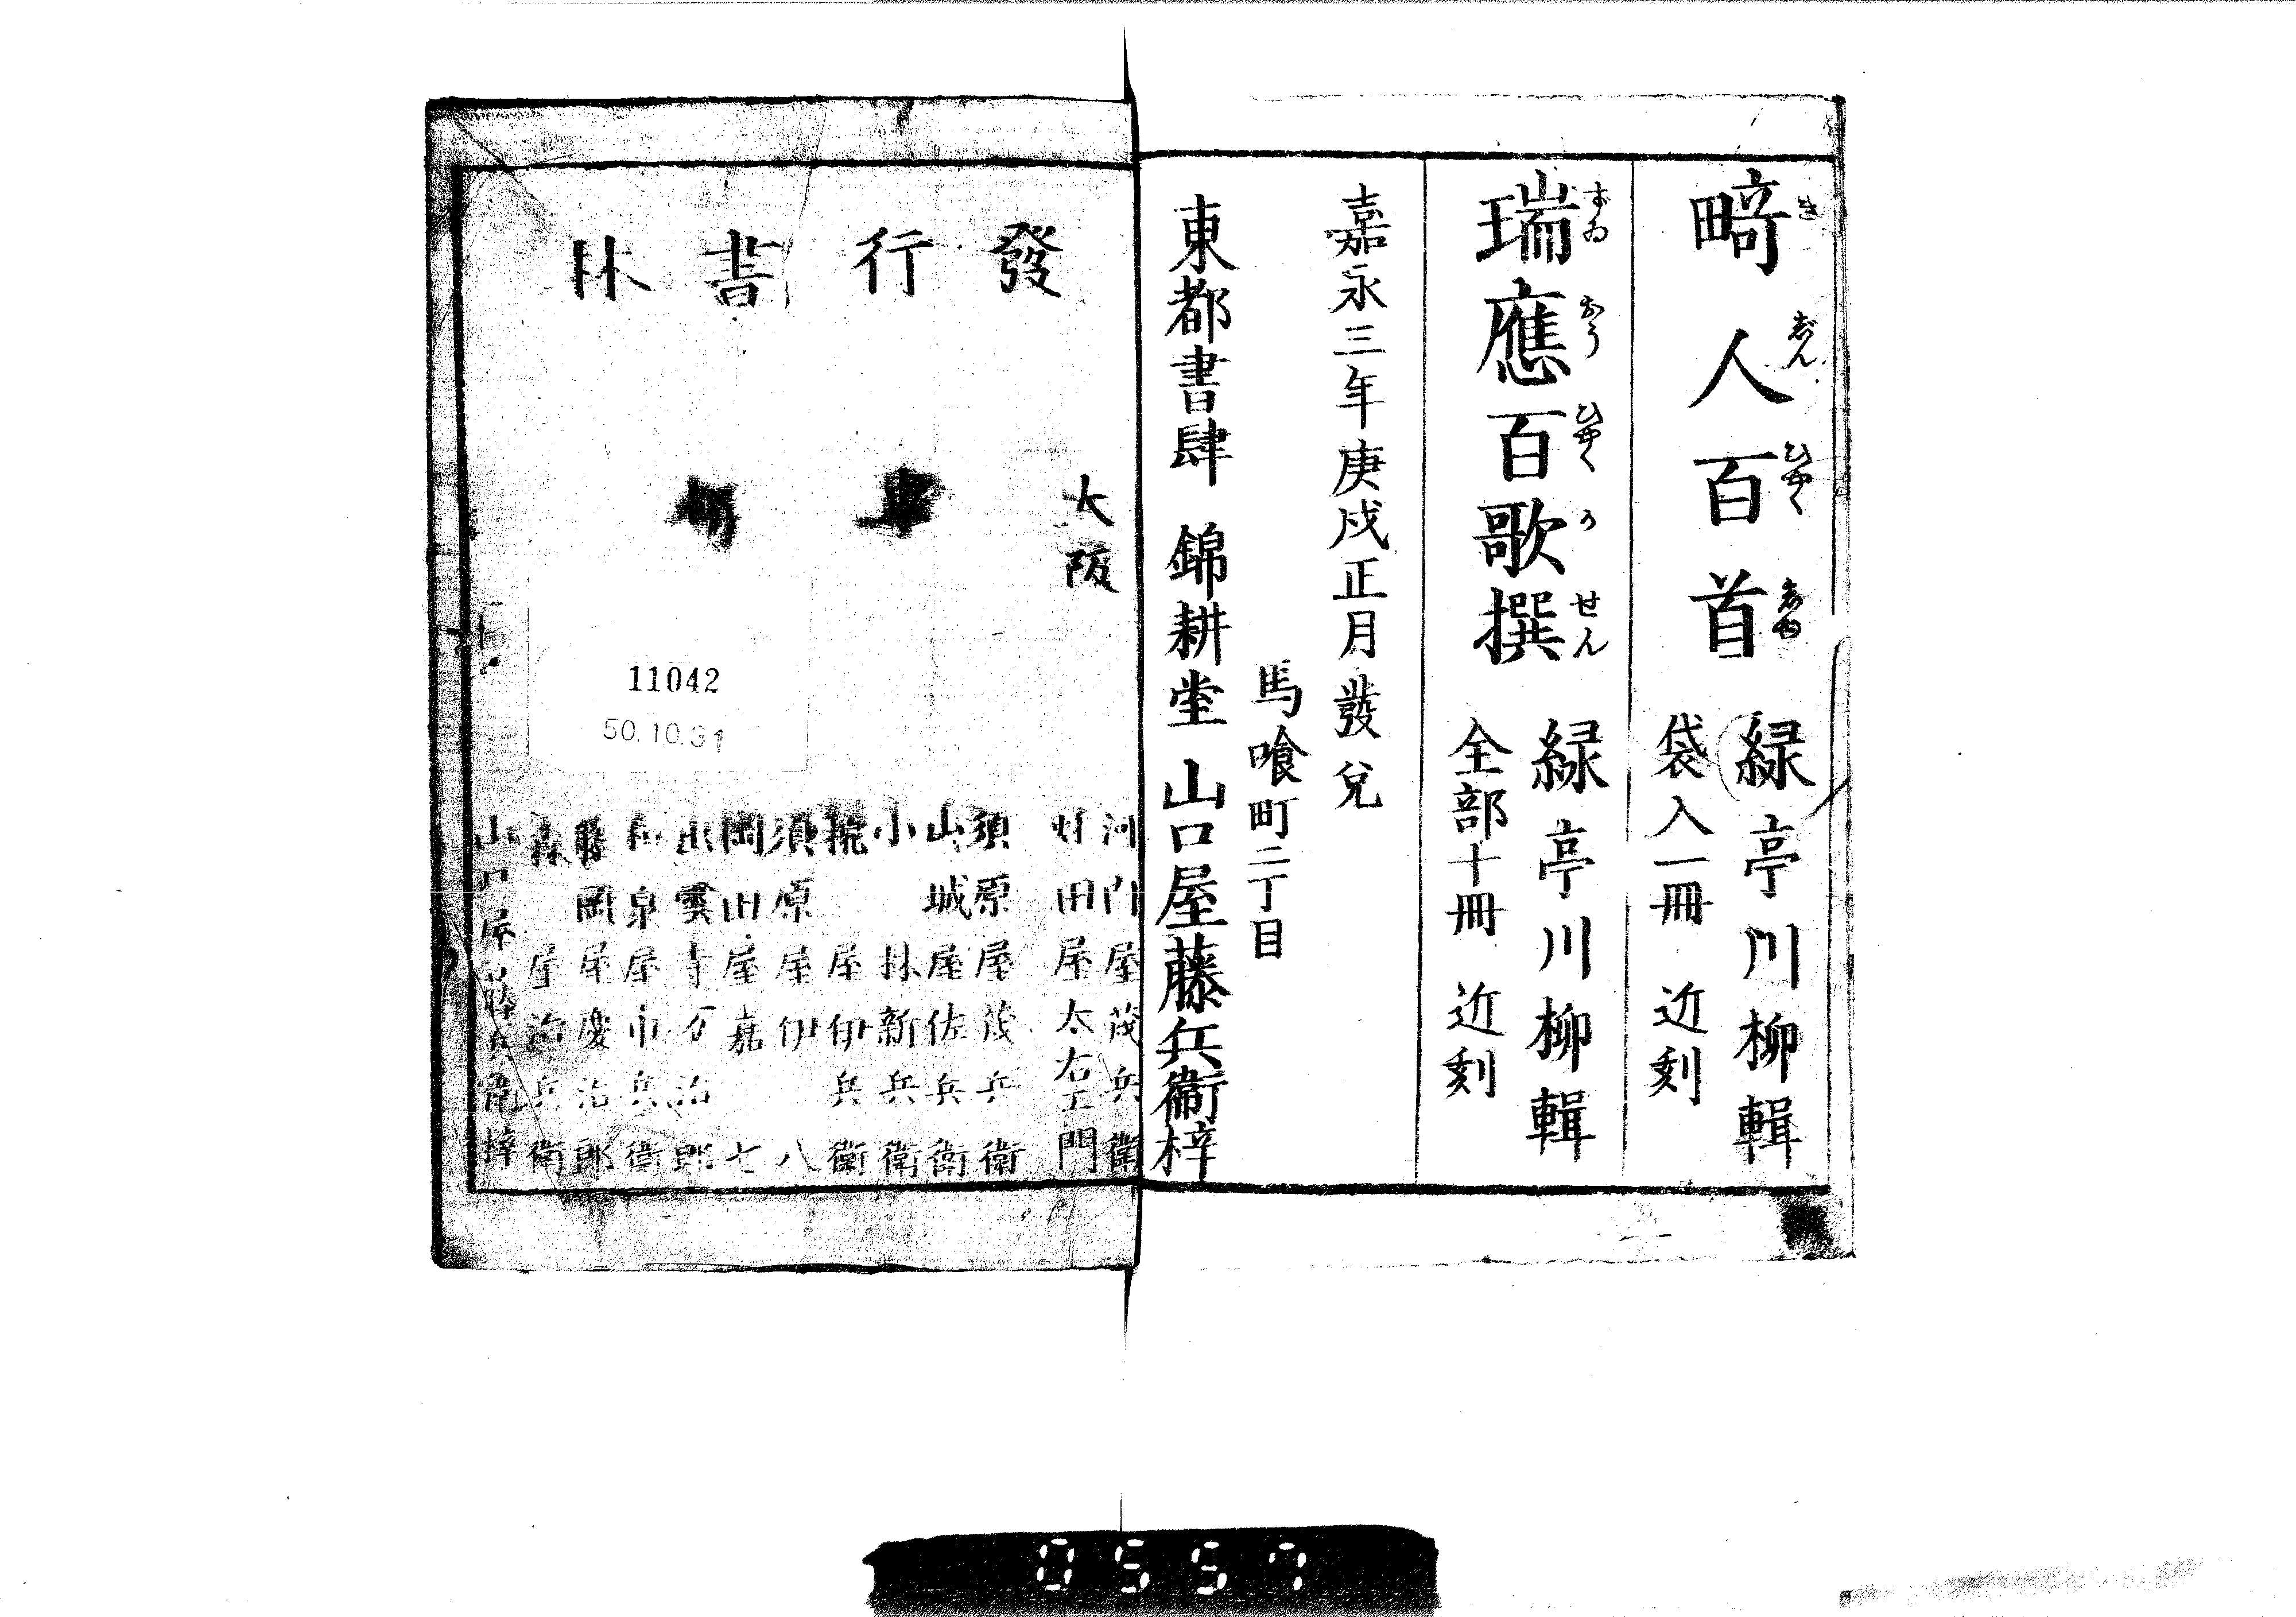 畸人百首
きじんひやくしゆ
緑亭川柳輯
袋入一冊 近刻
瑞應百歌撰
ずゐおうひやくかせん
緑亭川柳輯
全部十冊 近刻
嘉永三年庚戌正月發兌
馬喰町二丁目
東都書肆 錦耕堂 山口屋藤兵衞梓
發行書林
大阪
河内屋茂兵衛
屋太右エ門
須原屋茂兵衛
山城屋佐兵衛
小林新兵衛
屋伊兵衛
須原屋伊八
岡田屋嘉七
出雲寺万治郎
和泉屋市兵衛
藤岡屋慶治郎
森屋治兵衛
山口屋藤兵衛梓
11042
50.10.31
0557